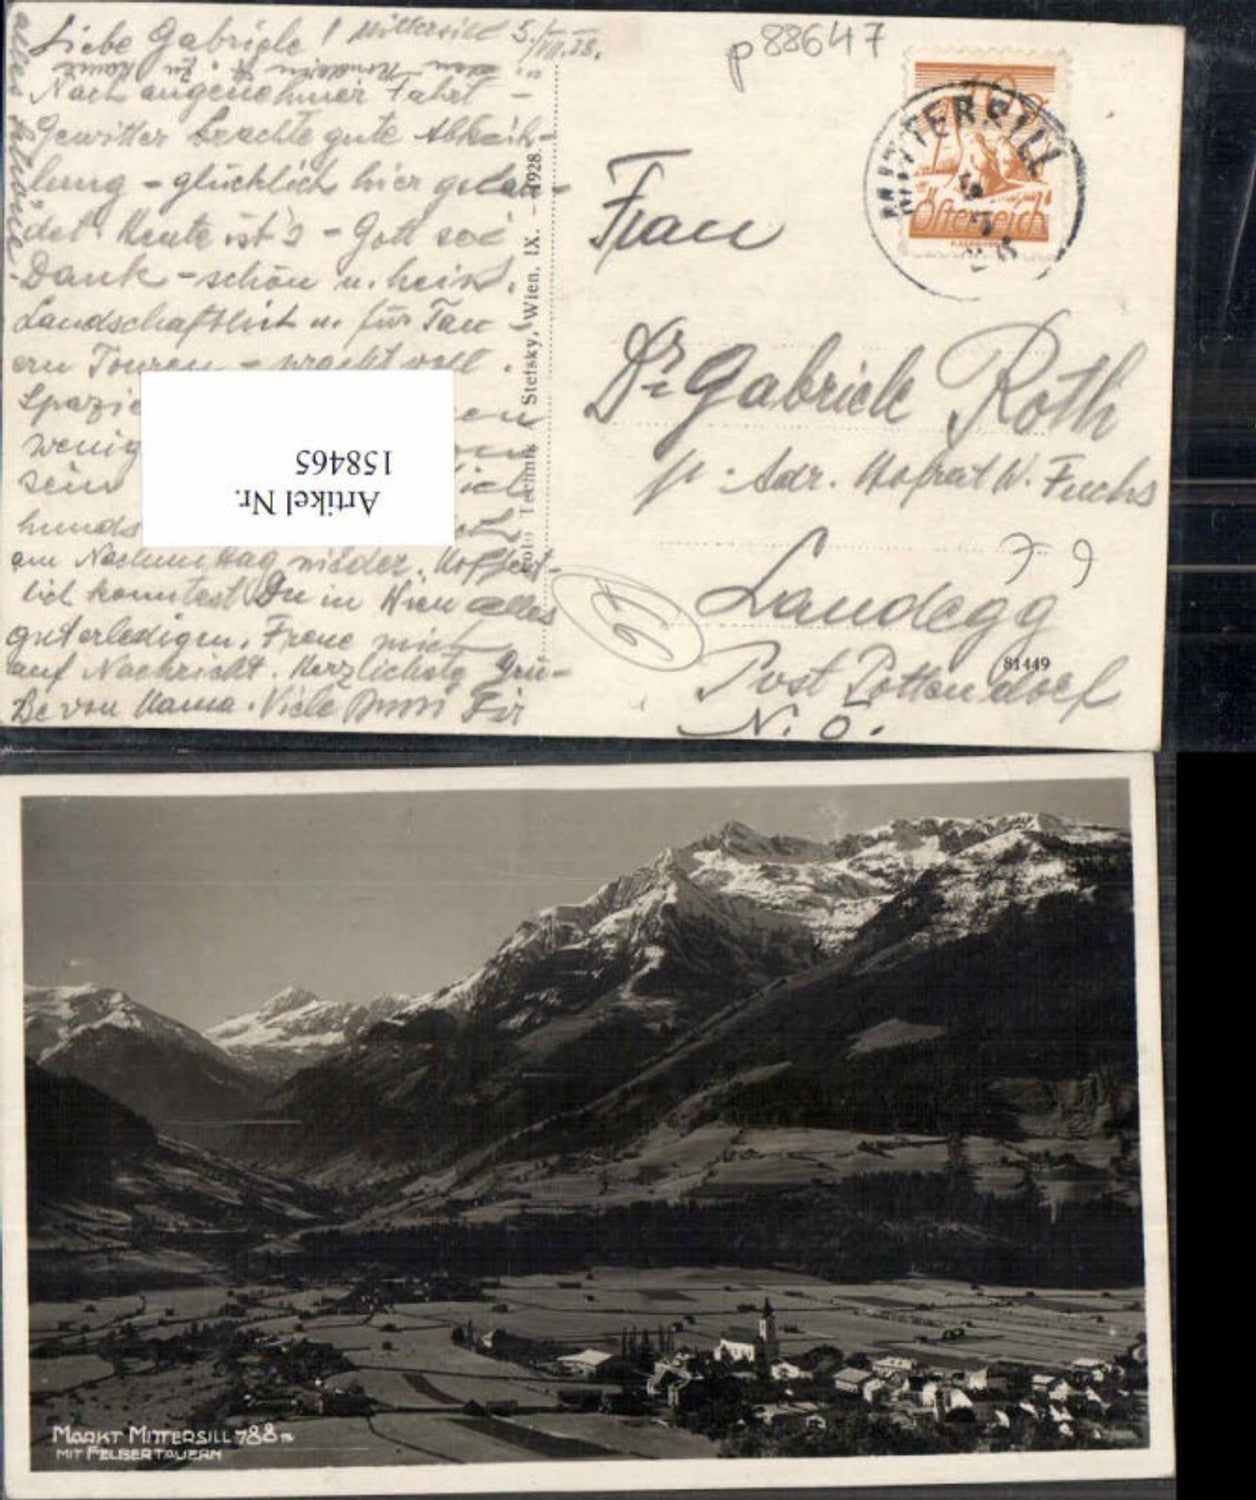 Liebe Gabriele! Mittersill 5./VII.28.
Nach angenehmer Fahrt -
Gewitter brachte gute Abküh-
lung - glücklich hier gelan-
det. Heute ist's - Gott sei
Dank - schön u. heiß.
Landschaftlich u. für Tau-
ern Touren - prachtvoll.
wenig
sein
am Nachmittag nieder. Hoffent-
lich konntest Du in Wien alles
gut erledigen. Freue mich
auf Nachricht. Herzlichste Grü-
ße von Mama. Viele
Artikel Nr.
158465
Stefsky, Wien, IX. - 1928
p88647
MITTERSILL
Österreich
Frau
Dr. Gabriele Roth
p. Adr. Hofrat W. Fuchs
Landegg
81449
Post Pottendorf
N. Ö.
MARKT MITTERSILL 788 m
MIT FELBERTAUERN